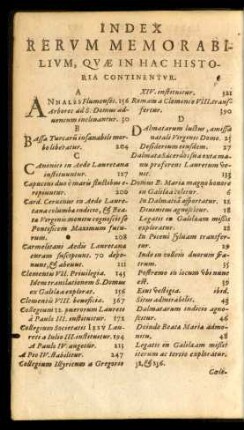 INDEX
RERVM MEMORABI-
LIVM, QVÆ IN HAC HISTO-
RIA CONTINENTVR.
A
ANNALES Flumensis. 156
Arbores ad S. Domus ad-
uentum inclinantur. 30
B
Bassa Turcarũ insanabile mor-
bo liberatur. 204
C
Canonici in Aede Lauretana
instituuntur. 127
Capucinus dæ è manu
repiuntur. 200
Card. Ceruinus in Aede Laure-
tana columba cedere, & Bea-
tæ Virginis
Pontificem Maximum futu-
rum. 208
Carmelitani Aedis Lauretanæ
curam suscipiunt. 70 depo-
nunt, & abeunt. 111
Clementis VII. Priuilegia. 145
Idem translationem S. Domus
ex Galilæa explorat. 156
Clementis VIII. beneficia. 367
Collegium 12. puerorum Laureti
à Paulo III. instituitur. 172
Collegium Societatis IESV Lau-
reti à Iulio III. instituitur. 194
A Paulo IV. augetur. 211
A Pio IV. stabilitur. 247
Collegium Illyricum à Gregorio
XIV. instituitur. 321
Romam à Clemente VIII. transf-
fertur. 390
D
Dalmatarum luctus, amissa
natali Virginis Domo. 25
Desiderium eiusdem. 27
Dalmata Sacerdos
manu præferens Lauretum ve-
nit. 135
Domus B. Mariæ magno honore
in Galilæa colitur. 6
In Dalmatiam asportatur. 12
Diuinitus agnoscitur. 18
Legatis in Galilæam missis
exploratur. 22
In Piceni syluam transfer-
tur. 29
Inde in collem duorum fra-
trum. 35
Postremo in locum vbi nunc
est. 39
Eius vestigia. ibid.
Situs admirabilis. 43
Dalmatarum indicio agno-
scitur. 46
Deinde Beatæ Mariæ admo-
nitu. 48
Legatis in Galilæam missis
iterum ac tertio exploratur.
52, & 156.
Cœle-